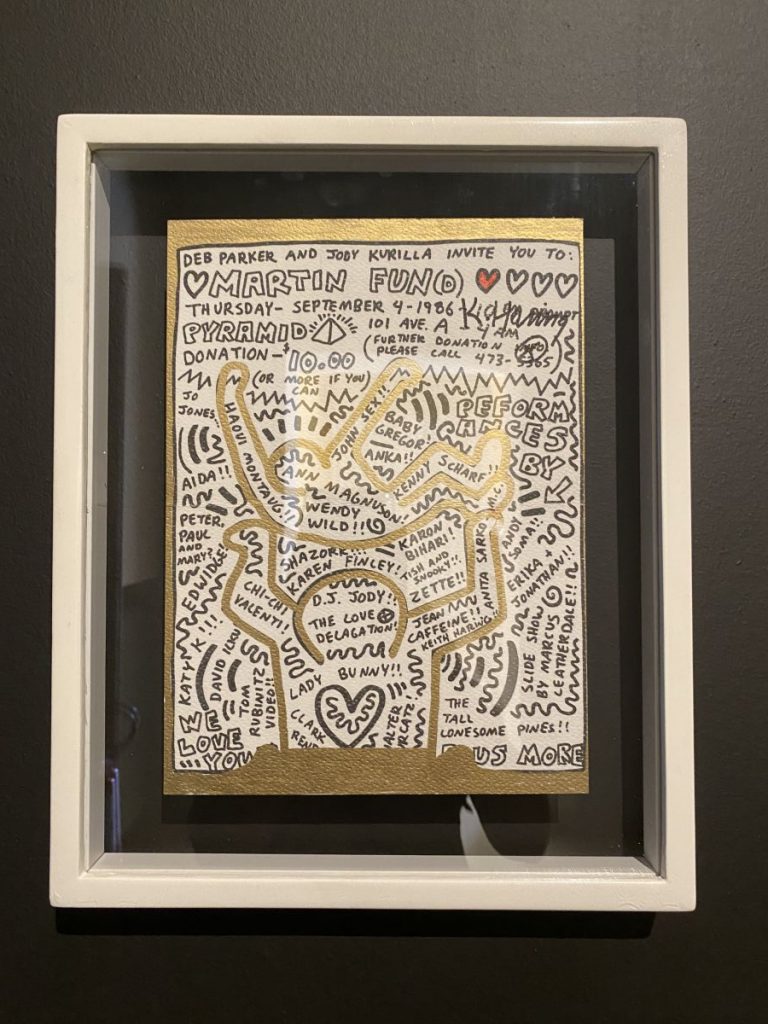 DEB PARKER AND JODY KURILLA INVITE YOU TO:
MARTIN FUN(D)
THURSDAY - SEPTEMBER 4 - 1986
PYRAMID
101 AVE. A
4 AM
DONATION - $10.00
(OR MORE IF YOU CAN
(FURTHER DONATION INFO
PLEASE CALL 473-5365
PEFORM
ANCES
BY
JO
JONES
AIDA!!
PETER,
PAUL
AND
MARY?
EDWIDGE!
KATY K!!!
HAOUI MONTAUG!!
JOHN SEX!!
BABY
GREGOR!
ANKA!!
KENNY SCHARF!!
ANN MAGNUSON!
WENDY
WILD!!
SHAZORK!!!
KAREN FINLEY!
KARON
BIHARI!
TISH AND
SNOOKY!!
ZETTE!!
ANITA SARKO
ANDY
SOMA!!
ERIKA +
JONATHAN!!
CHI-CHI
VALENTI!
D.J. JODY!!
THE LOVE
DELAGATION!
JEAN
CAFFEINE!!
KEITH HARING
SLIDE SHOW
BY MARCUS
LEATHERDALE!!
DAVID ILKU
TOM
RUBINITZ
VIDEO!!
LADY BUNNY!!
CLARK
THE
TALL
LONESOME PINES!!
WE
LOVE
YOU
US MORE